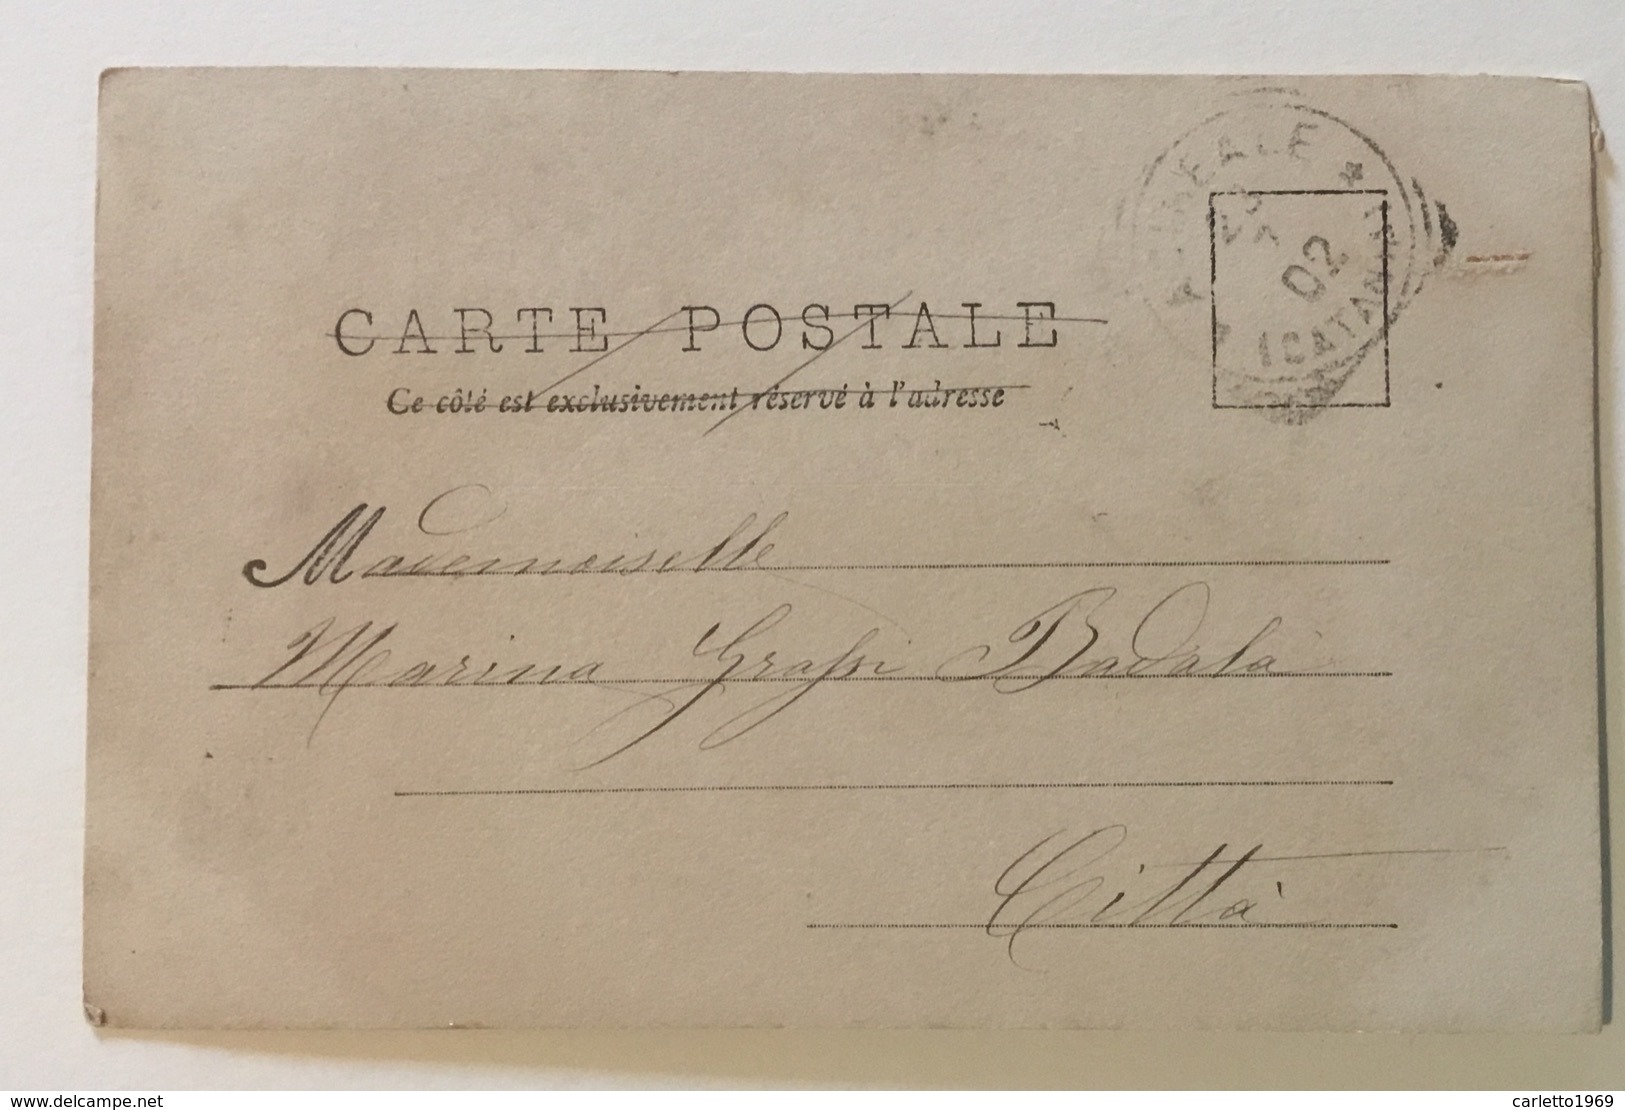 ACIREALE
02
(CATANIA)
CARTE POSTALE
Ce côté est exclusivement réservé à l'adresse
Mademoiselle
Marina Grassi Badalà
Città
www.delcampe.net
carletto1969